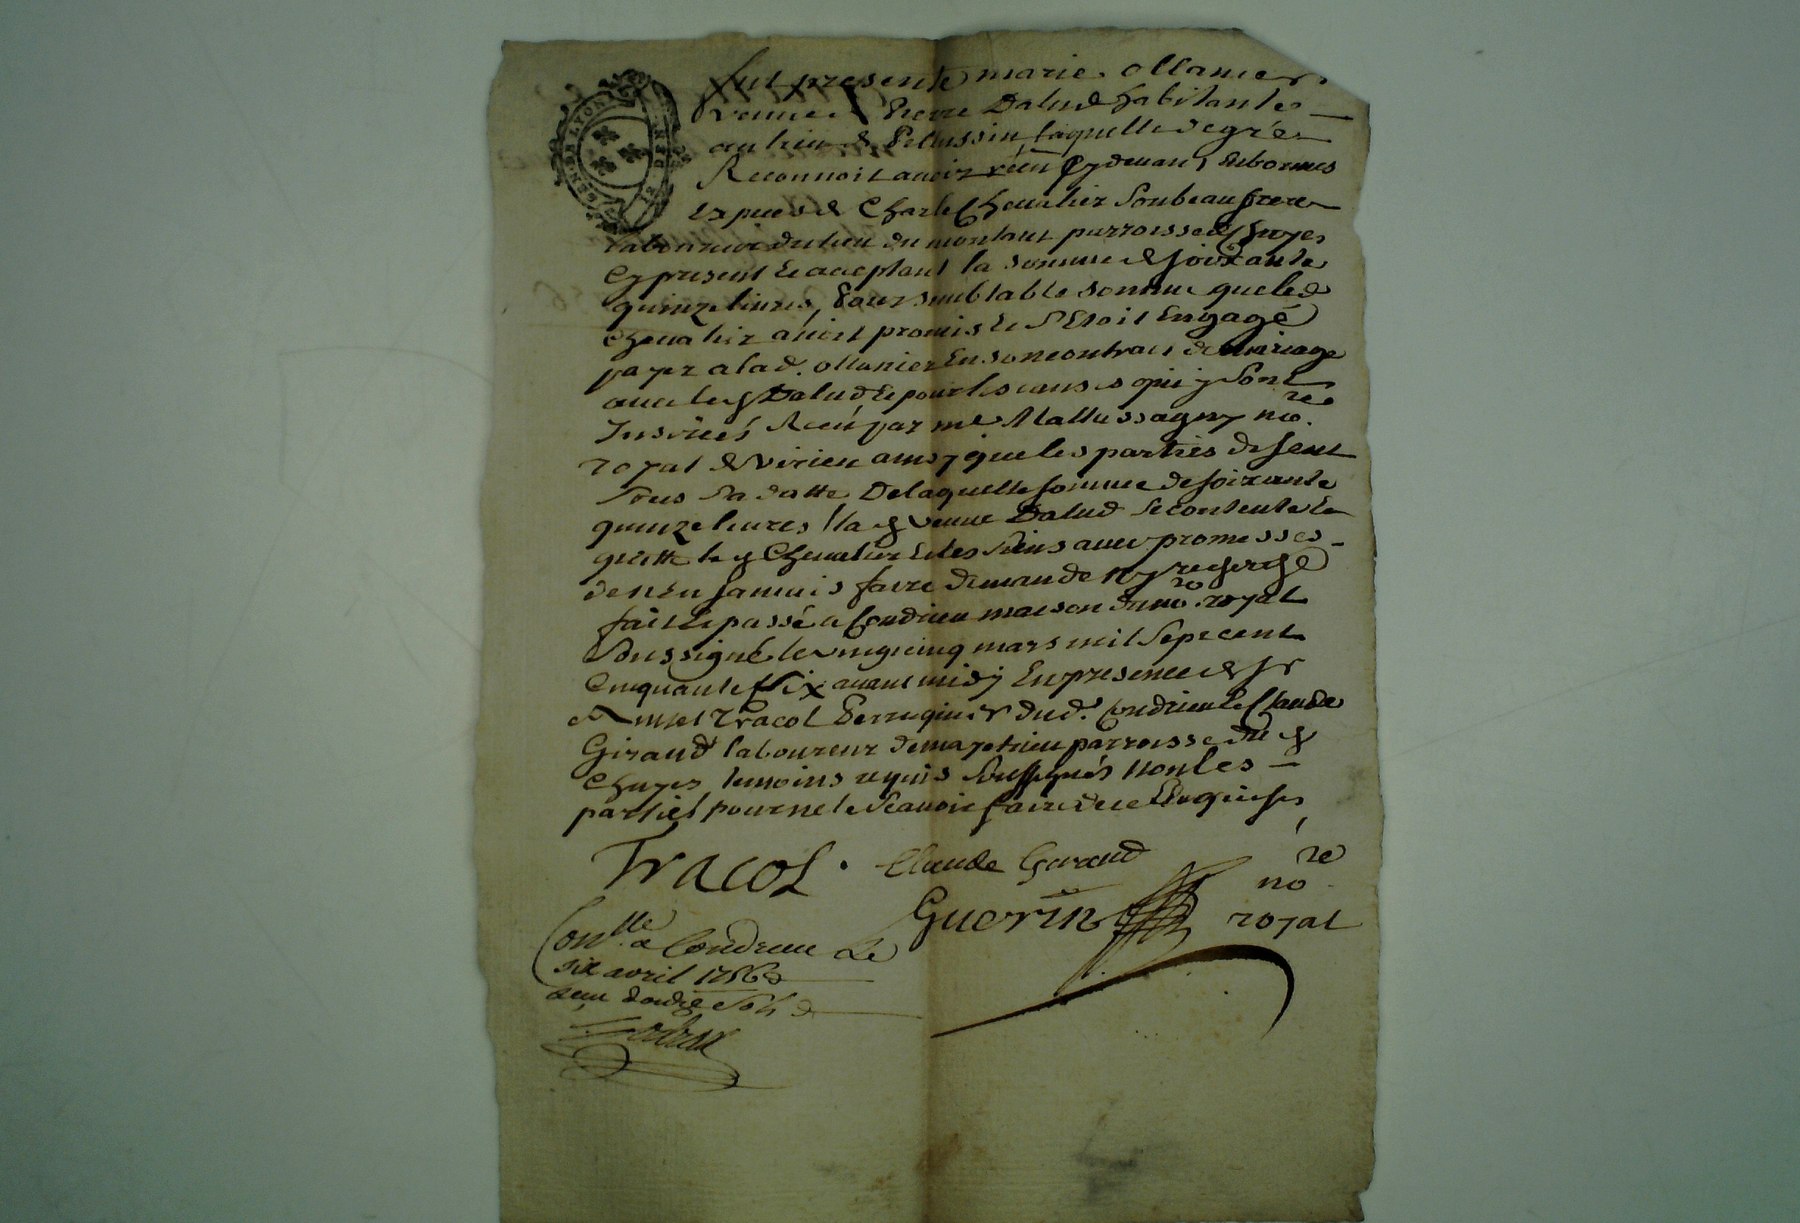 GEN. DE LYON
fut presente marie ollanier
veuve de Pierre Dalud habitante
au lieu de Pelussin, laquelle de gré
Reconnoit avoir réçu Cydevant en bonnes
Especes de Charle Chevalier Son beau frere
laboureur du lieu du montant parroisse de Chuyer
Cy present Et acceptant la somme de soixante
quinze livres, Pour semblable somme que led
Chevalier avoit promis Et S'Etoit Engagé
payer a lad. ollanier En son contrat de mariage
avec led Dalud Et pour les causes qui y Sont
Inserés Recu par me Mallassagny nore
royal de Virieu ainsy que les parties disent
Sous Sa datte De laquelle somme de soixante
quinze livres la d veuve Dalud Se contente Et
quitte le d Chevalier Et les Siens avec promesses
de n'En Jamais faire demande ny recherche
fait Et passé a Condrieu maison du nore royal
Soussigné le vingt cinq mars mil Sept cent
Cinquante Six avant midy En presence de Sr
Tracol Perruquier dud. Condrieu Et Claude
Giraud laboureur de parroisse du d
Chuyer temoins requis Soussignés non les
parties pour ne le Scavoir faire de ce Enquises
Tracol. Claude Giraud
Guerin nore
royal
Conlle a Condrieu Le
six avril 1756
Reçu douze Sols